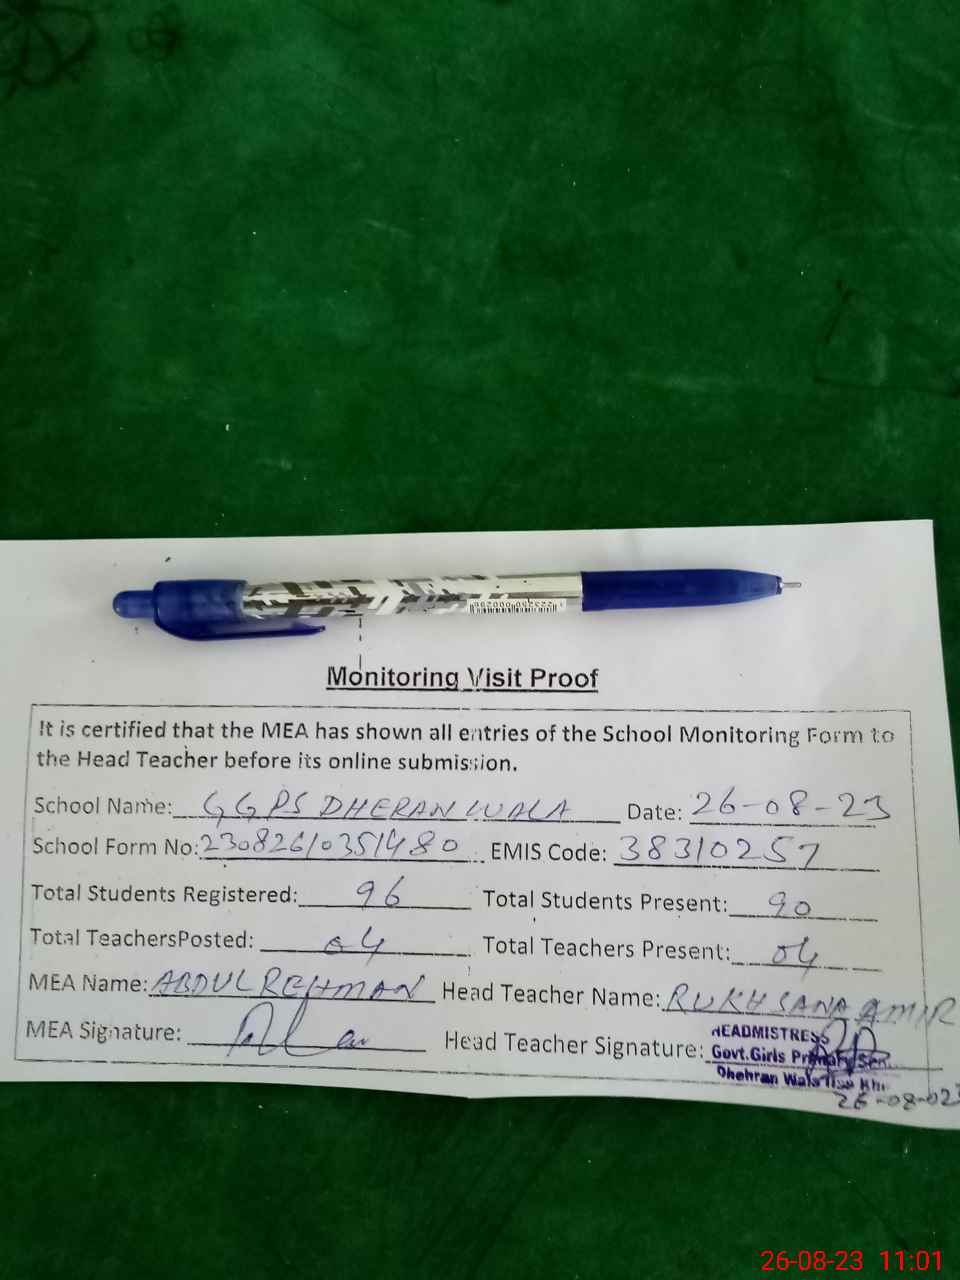 Monitoring Visit Proof
It is certified that the MEA has shown all entries of the School Monitoring Form to
the Head Teacher before its online submission.
School Name: GGPS DHERANWALA Date: 26-08-23
School Form No: 23082610351480 EMIS Code: 38310257
Total Students Registered: 96 Total Students Present: 90
Total TeachersPosted: 04 Total Teachers Present: 04
MEA Name: ABDUL REHMAN Head Teacher Name: RUKHSANA AMIR
MEA Signature: Head Teacher Signature:
HEADMISTRESS
Govt.Girls Primary
Dhehran Wala
26-08-023
26-08-23 11:01